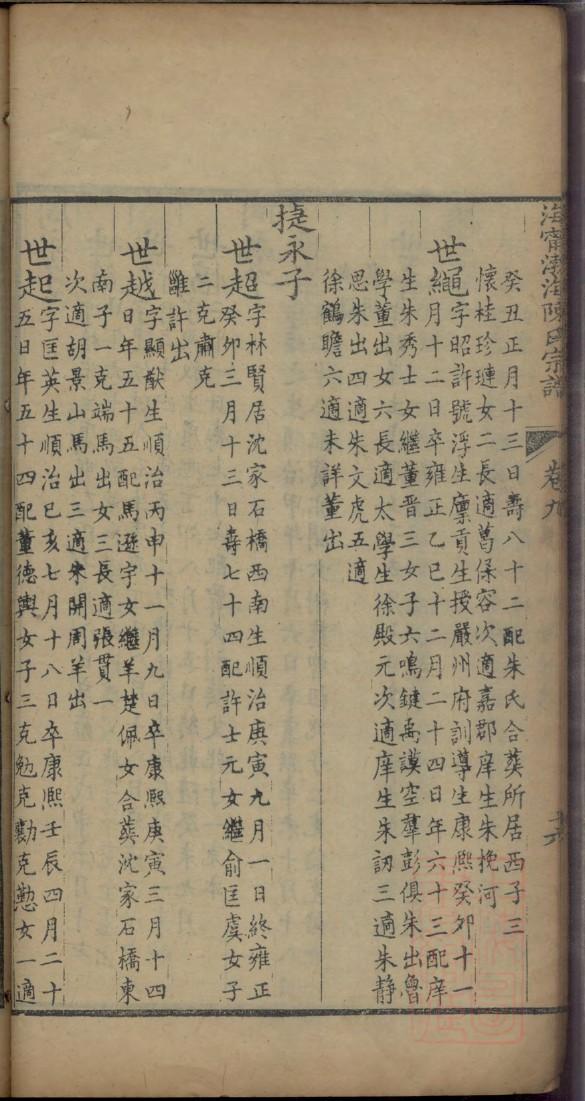 海甯渤海陳氏宗譜
卷九
癸丑正月十三日壽八十二配朱氏合葬所居西子三
懷桂珍璉女二長適葛保容次適嘉郡庠生朱挽河
世繩字昭許號浮生廪貢生授嚴州府訓導生康熙癸卯十一
月十二日卒雍正乙巳十二月二十四日年六十三配庠
生朱秀士女繼董晋三女子六鳴鍵禹謨空羣彭俱朱出魯
學董出女六長適太學生徐殿元次適庠生朱訒三適朱静
思朱出四適朱文虎五適
徐鶴瞻六適未詳董出
捷永子
世超字林賢居沈家石橋西南生順治庚寅九月一日終雍正
癸卯三月十三日壽七十四配許士元女繼俞匡虞女子
二克肅克
雝許出
世越字顯猷生順治丙申十一月九日卒康熙庚寅三月十四
日年五十五配馬遜宇女繼羊楚佩女合葬沈家石橋東
南子一克端馬出女三長適張貫一
次適胡景山馬出三適朱開周羊出
世起字匡英生順治己亥七月十八日卒康熙壬辰四月二十
五日年五十四配董德輿女子三克勉克勷克懃女一適